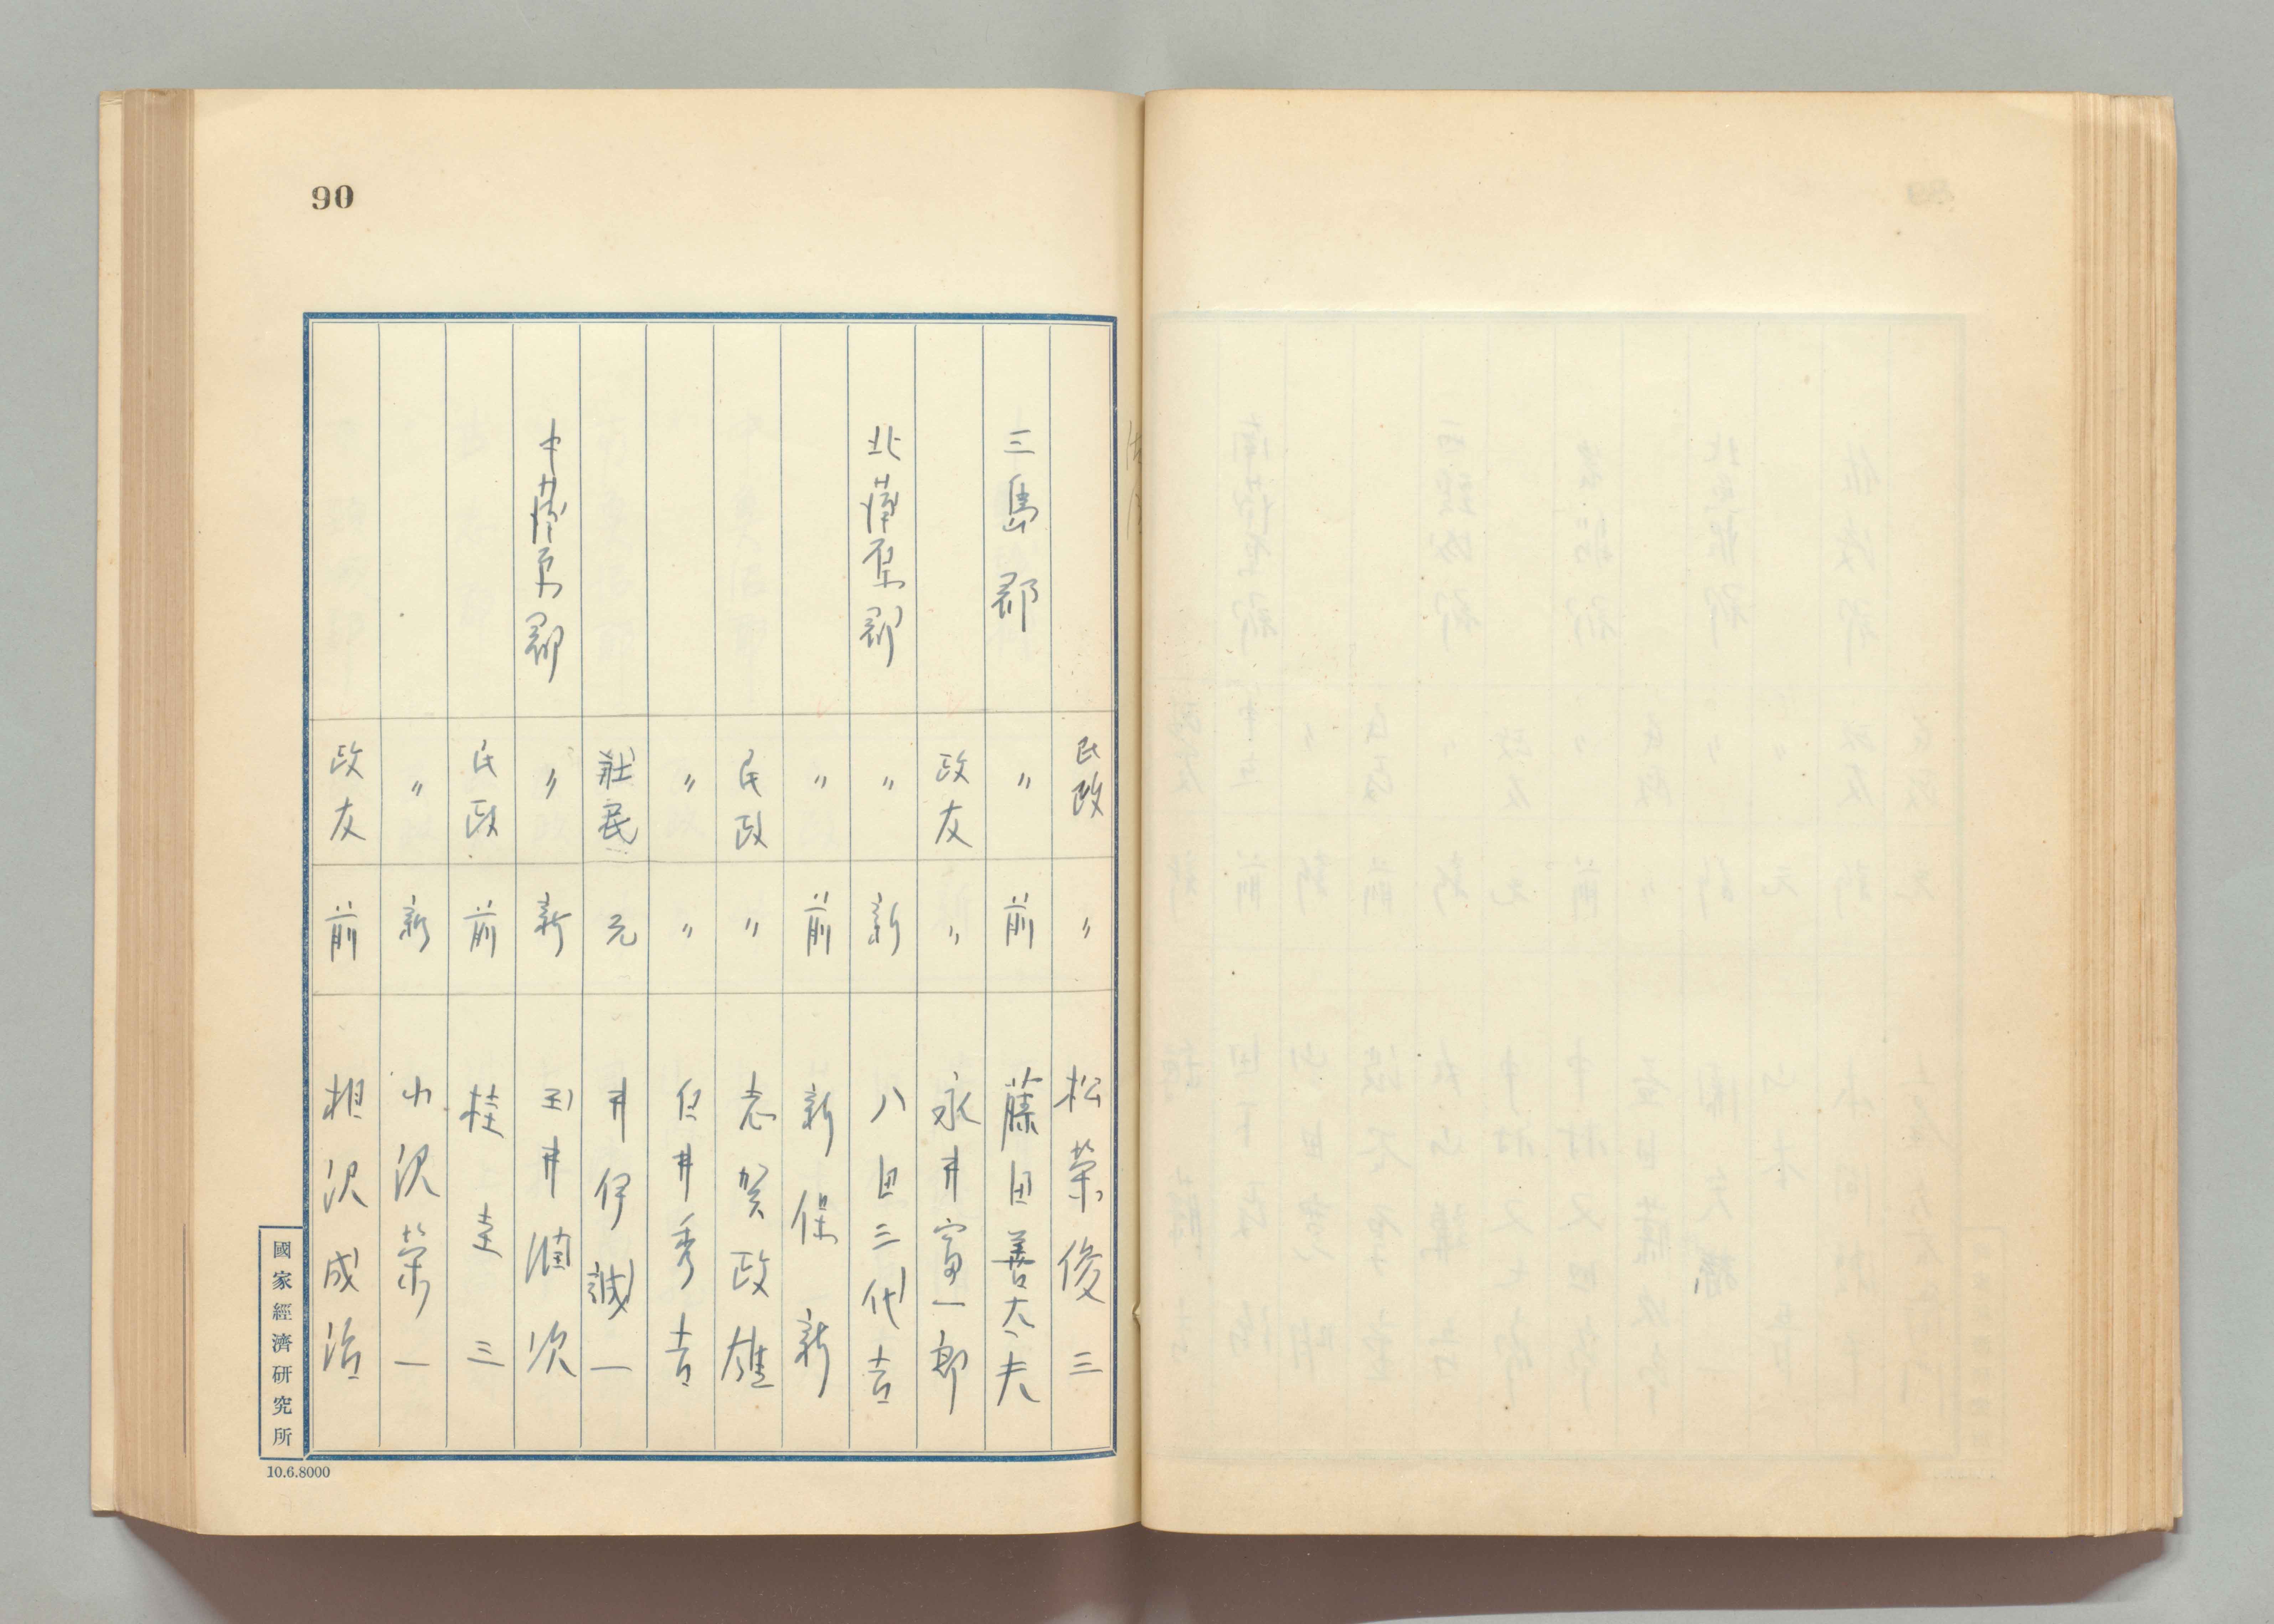 90
民政 〃 松葉俊三
三島郡 〃 前 藤田善太夫
政友 〃 永井寅一郎
北蒲原郡 〃 新 八田三代吉
〃 前 新保新
民政 〃 志賀政雄
〃 〃 白井秀吉
莊民 元 井伊誠一
中蒲原郡 〃 新 玉井潤次
民政 前 桂圭三
〃 新 小沢第一
政友 前 相沢成治
國家經濟研究所
10.6.8000